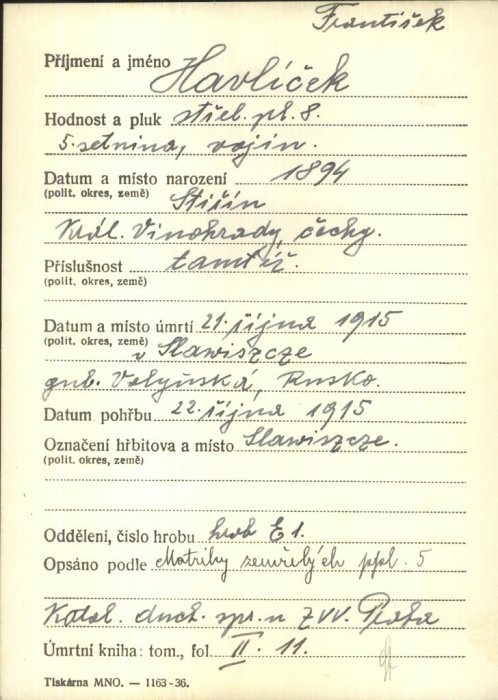 František
Příjmení a jméno Havlíček
Hodnost a pluk střel. pl. 8.
5. setnina, vojín.
Datum a místo narození 1894
(polit. okres, země) Stiřín
Král. Vinohrady, Čechy.
Příslušnost tamtéž.
(polit. okres, země)
Datum a místo úmrtí 21. října 1915
(polit. okres, země) v Slawiszcze
gub. Volyňská, Rusko.
Datum pohřbu 22. října 1915
Označení hřbitova a místo Slawiszcze.
(polit. okres, země)
Oddělení, číslo hrobu hrob E 1.
Opsáno podle Matriky zemřelých ppl. 5
Katol. duch. spr. u ZVV. Praha
Úmrtní kniha: tom., fol. II. 11.
Tiskárna MNO. — 1163-36.